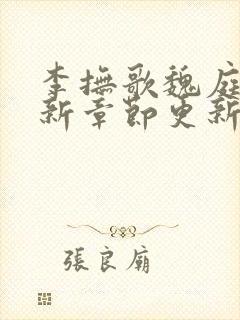 李撫歌魏庭
新章節更新
張良廟